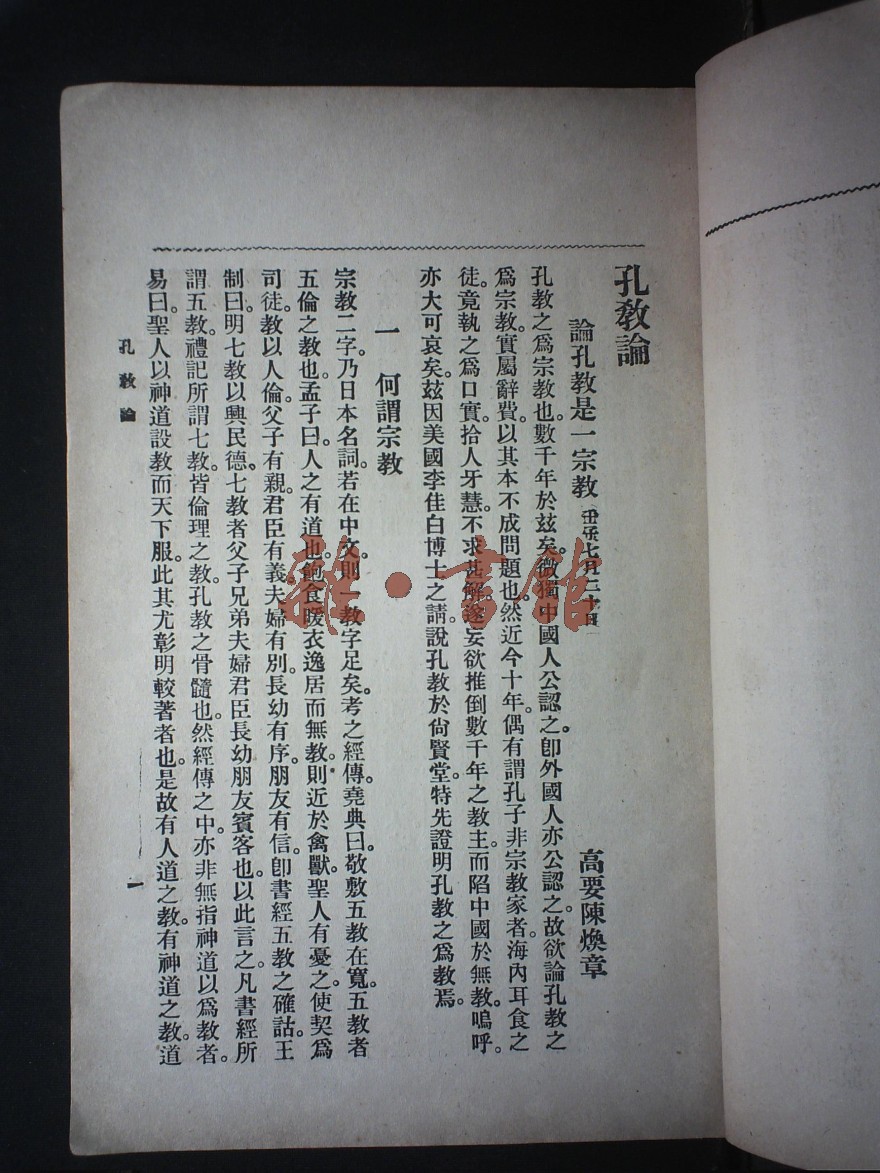 孔教論
論孔教是一宗教 壬子七月二十日
高要陳煥章
孔教之爲宗教也。數千年於茲矣。微獨中國人公認之。卽外國人亦公認之。故欲論孔教之
爲宗教。實屬辭費。以其本不成問題也。然近今十年。偶有謂孔子非宗教家者。海內耳食之
徒。竟執之爲口實。拾人牙慧。不求甚解。遂妄欲推倒數千年之教主。而陷中國於無教。嗚呼。
亦大可哀矣。茲因美國李佳白博士之請。說孔教於尙賢堂。特先證明孔教之爲教焉。
一 何謂宗教
宗教二字。乃日本名詞。若在中文。則一教字足矣。考之經傳。堯典曰。敬敷五教在寬。五教者
五倫之教也。孟子曰。人之有道也。飽食暖衣逸居而無教。則近於禽獸。聖人有憂之。使契爲
司徒。教以人倫。父子有親。君臣有義。夫婦有別。長幼有序。朋友有信。卽書經五教之確詁。王
制曰。明七教以興民德。七教者父子兄弟夫婦君臣長幼朋友賓客也。以此言之。凡書經所
謂五教。禮記所謂七教。皆倫理之教。孔教之骨髓也。然經傳之中。亦非無指神道以爲教者。
易曰。聖人以神道設教而天下服。此其尤彰明較著者也。是故有人道之教。有神道之教。道
孔教論
一
雜·书馆